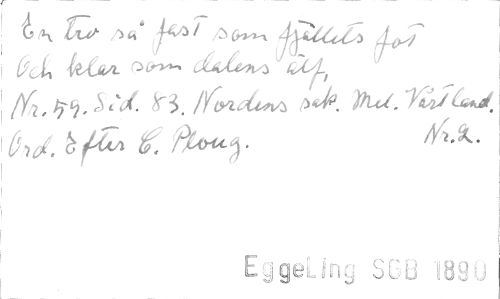 En tro så fast som fjällets fot
Och klar som dalens älf,
Nr. 59. Sid. 83. Nordens sak. Mel. Vårt land.
Ord. Efter C. Ploug. Nr. 2.
EggeLing SGB 1890